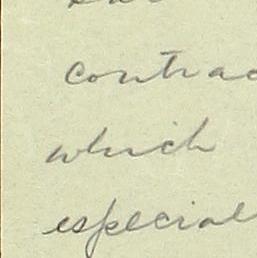 contrac
which
especial